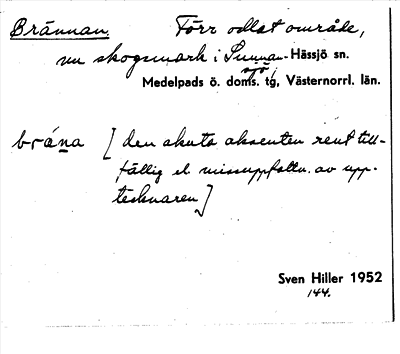 Brännan. Förr odlat område,
nu skogsmark i Sunnan-Hässjö sn.
sjö,
Medelpads ö. doms. tg, Västernorrl. län.
brá̈na [den akuta aksenten rent till-
fällig el. missuppfattn. av upp-
tecknaren]
Sven Hiller 1952
144.